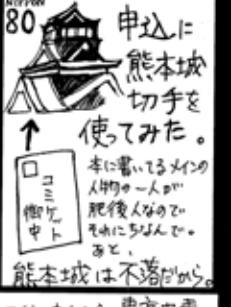 NIPPON
80
申込に
熊本城
切手を
使ってみた。
コミケット
御中
本に書いてるメインの
人物の一人が
肥後人なので
それにちなんで。
あと、
熊本城は不落だから。